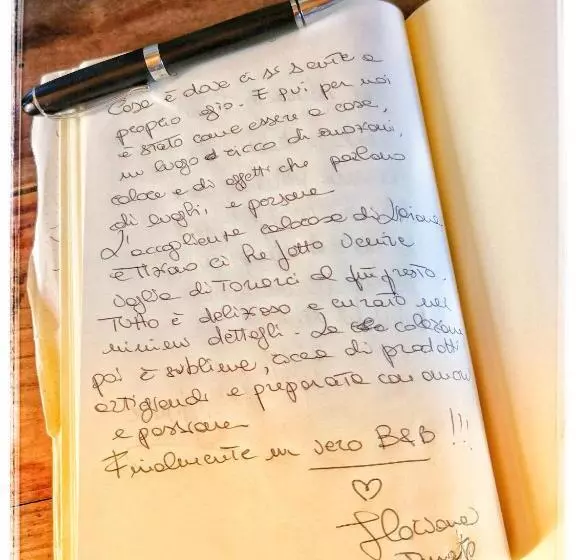 Casa è dove ci si sente a
proprio agio. E qui per noi
è stato come essere a casa,
un luogo ricco di emozioni,
calore e di oggetti che parlano
di luoghi, e persone
L'accogliente calorosa di
e ci ha fatto venire
voglia di tornarci al più presto.
Tutto è delizioso e curato nei
minimi dettagli. La colazione
poi è sublime, ricca di prodotti
artigianali e preparata con amore
e passione
Finalmente un vero B&B !!!